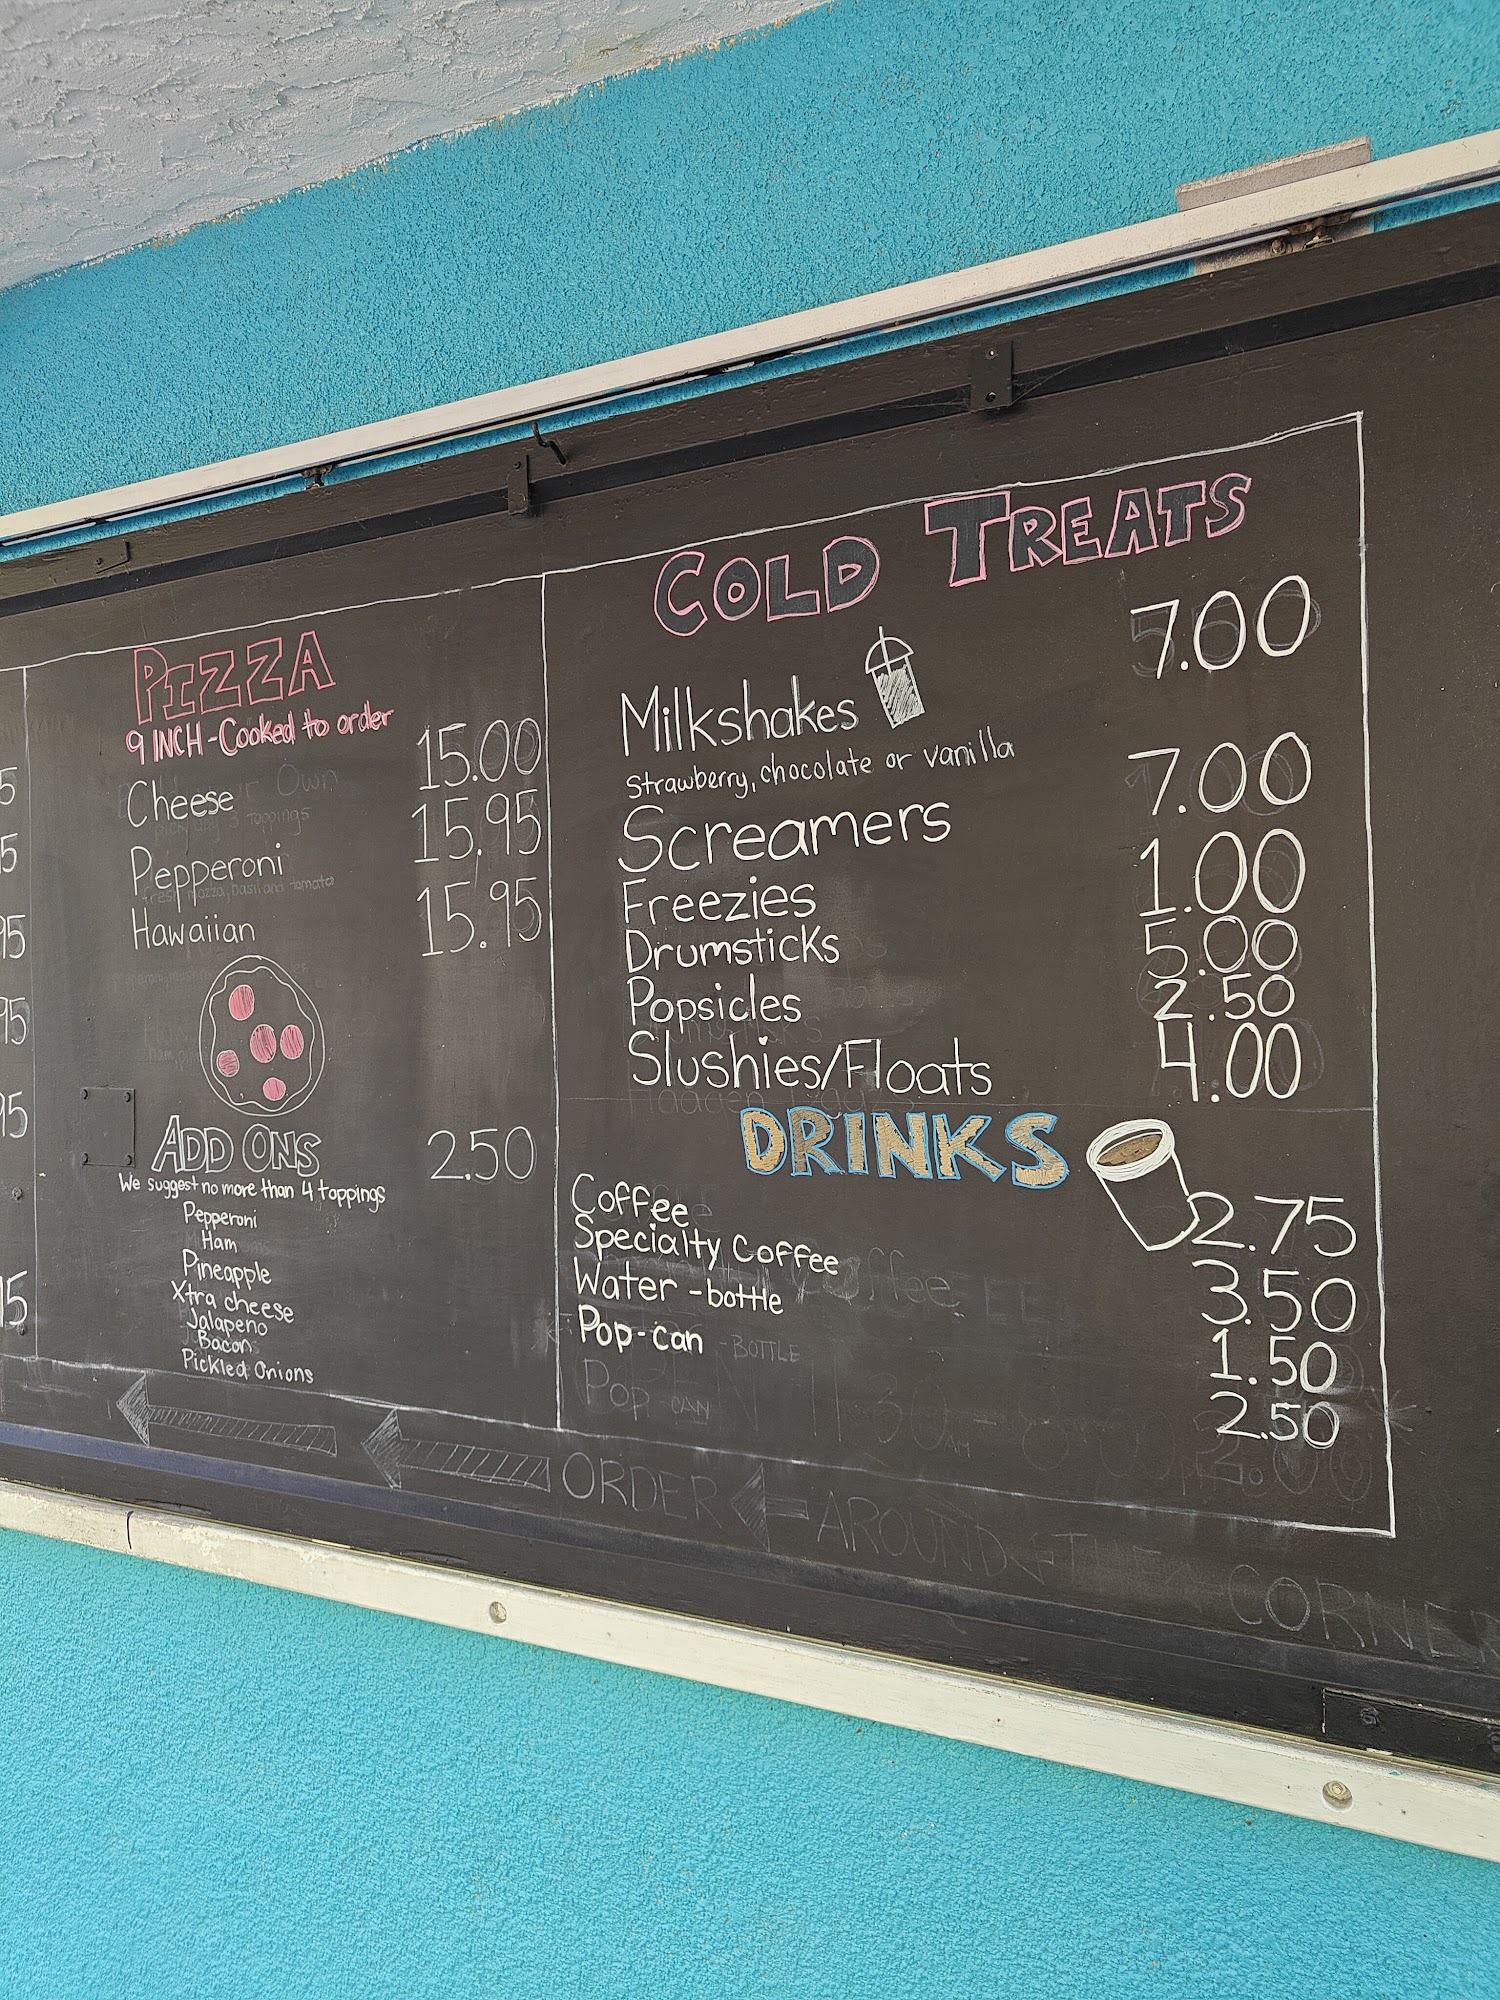 PIZZA
9 INCH - Cooked to order
Cheese 15.00
Pepperoni 15.95
Hawaiian 15.95
ADD ONS 2.50
We suggest no more than 4 toppings
Pepperoni
Ham
Pineapple
Xtra cheese
Jalapeno
Bacon
Pickled Onions
COLD TREATS
Milkshakes 7.00
Strawberry, chocolate or vanilla
Screamers 7.00
Freezies 1.00
Drumsticks 5.00
Popsicles 2.50
Slushies/Floats 4.00
DRINKS
Coffee 2.75
Specialty Coffee 3.50
Water - bottle 1.50
Pop - can 2.50
- BOTTLE
Pop CAN
ORDER AROUND THE CORNER